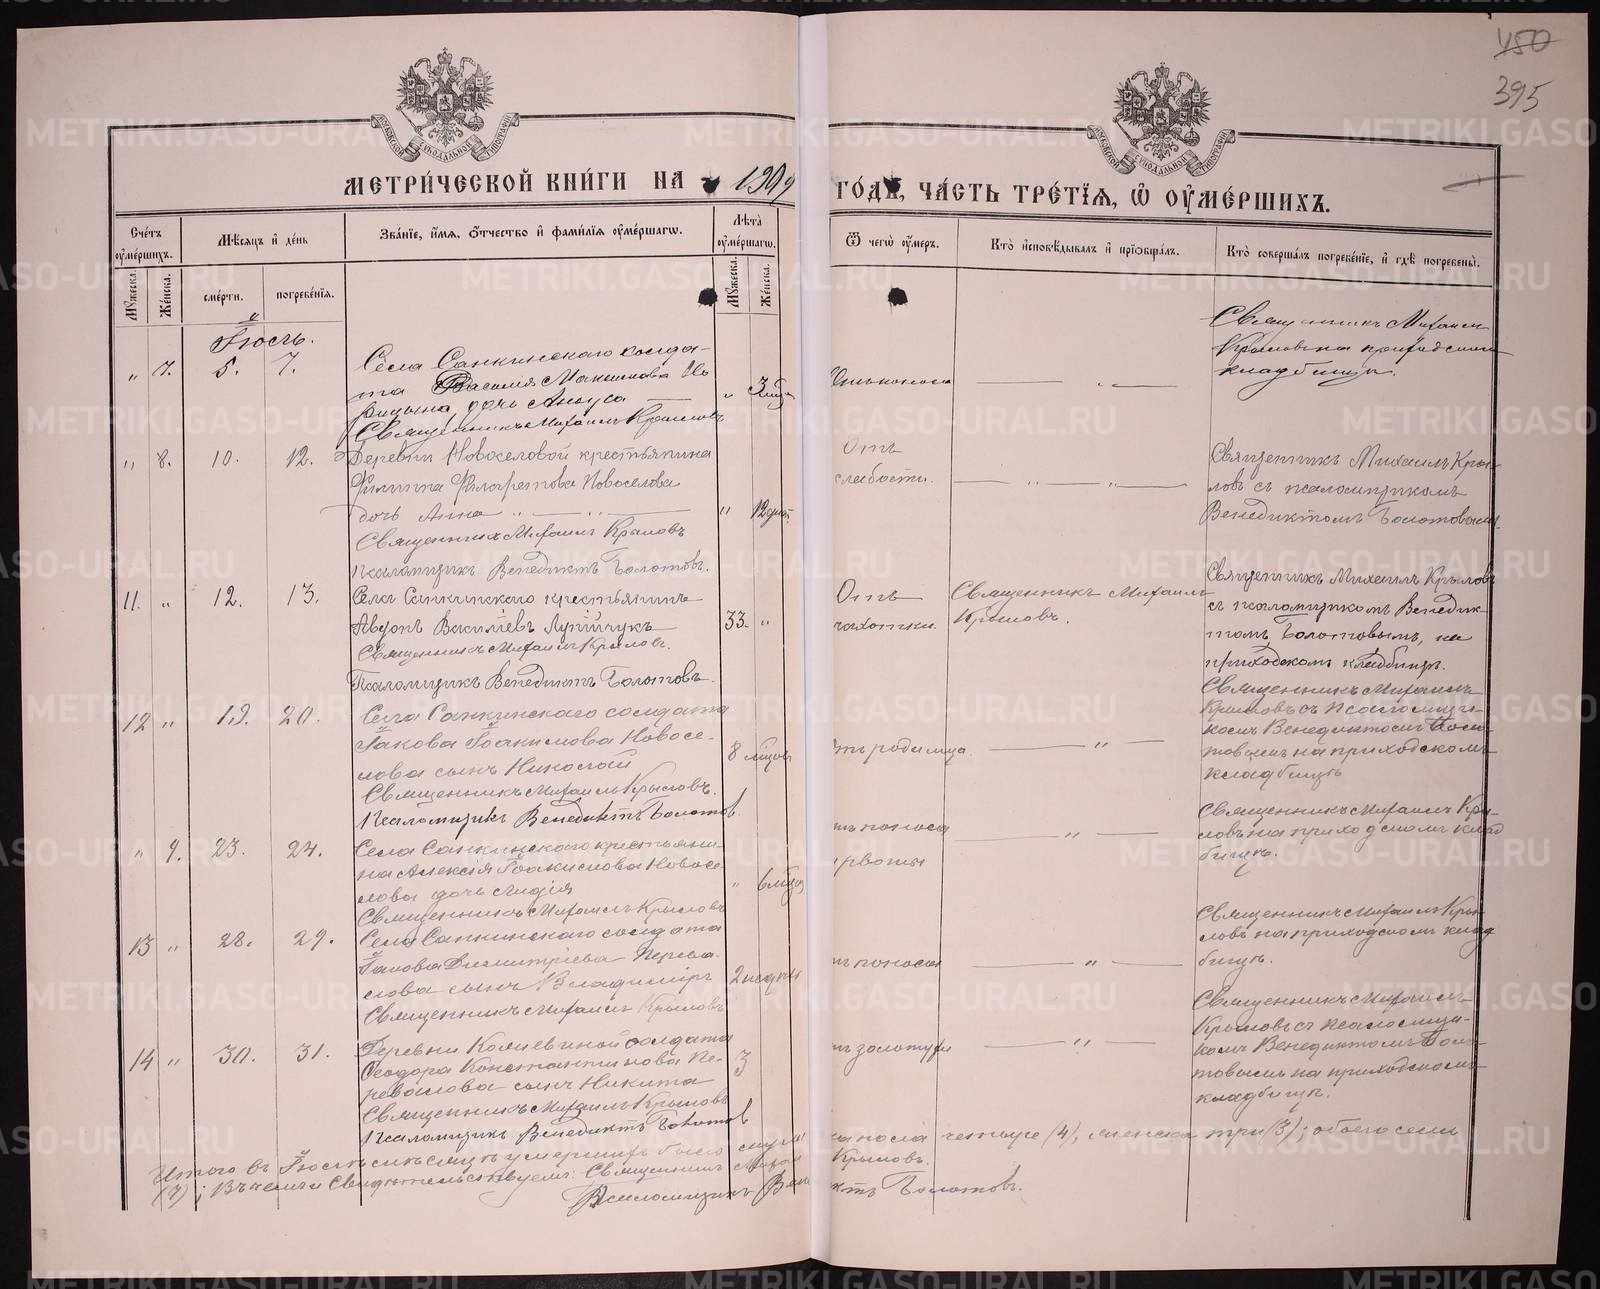 450
395
МЕТРИЧЕСКОЙ КНИГИ НА 1909
ГОДЪ, ЧАСТЬ ТРЕТІЯ, Ѿ ОУМЕРШИХЪ.
Счетъ оумершихъ.
Мѣсяцъ и день
Званіе, имя, отчество и фамилія оумершагѡ.
Лѣта оумершагѡ.
Ѿ чегѡ оумеръ.
Кто исповѣдывалъ и пріобщалъ.
Кто совершалъ погребеніе, и гдѣ погребены.
Мужеска.
Женска.
смерти.
погребенія.
Мужеска.
Женска.
Іюль.
" 7. 5. 7.
Села Санкинскаго солда-
та Василія Максимова
дочь
Священникъ Михаилъ Крыловъ
" 3
Священникъ Михаилъ
Крыловъ на приходскомъ
кладбищѣ.
" 8. 10. 12.
Деревни Новоселовой крестьянина
Филиппа Филаретова Новоселова
дочь Анна
Священникъ Михаилъ Крыловъ
Псаломщикъ Венедиктъ Болотовъ.
" 12 дней
Отъ
слабости.
Священникъ Михаилъ Кры-
ловъ съ псаломщикомъ
Венедиктомъ Болотовымъ.
11. " 12. 13.
Села Санкинского крестьянинъ
Авдон Василіевъ
Священникъ Михаилъ Крылов.
Псаломщикъ Венедиктъ Болотовъ.
33. "
Отъ
чахотки.
Священникъ Михаилъ
Крыловъ.
Священникъ Михаилъ Крыловъ
съ псаломщикомъ Венедик-
томъ Болотовымъ, на
приходскомъ кладбищѣ.
12 " 19. 20.
Села Санкинскаго солдата
Іакова Іоакимова Новосе-
лова сынъ Николай
Священникъ Михаилъ Крыловъ.
Псаломщикъ Венедиктъ Болотов.
8 мѣсяц
родимца.
Священникъ Михаилъ
Крыловъ съ псаломщи-
комъ Венедиктомъ Боло-
товымъ на приходскомъ
кладбищѣ
" 9. 23. 24.
Села Санкинскаго крестьяни-
на Алексія Іоакимова Новосе-
лова дочь Лидія
Священникъ Михаилъ Крыловъ
" 6
поноса
рвоты
Священникъ Михаилъ Кры-
ловъ на приходскомъ клад
бищѣ.
13 " 28. 29.
Села Санкинскаго солдата
Іакова Димитріева Перева-
лова сынъ Владиміръ
Священникъ Михаилъ Крыловъ
2 недѣли
поноса
Священникъ Михаилъ Кры-
ловъ на приходскомъ клад
бищѣ.
14 " 30. 31.
Деревни солдата
Ѳеодора Константинова Пе-
ревалова сынъ Никита
Священникъ Михаилъ Крыловъ
Псаломщикъ Венедиктъ Болотов
3
золотухи
Священникъ Михаилъ
Крыловъ съ псаломщи-
комъ Венедиктомъ Боло-
товымъ на приходскомъ
кладбищѣ.
Итого въ Іюлѣ мѣсяцѣ умершихъ было муж
пола четыре (4), женска три (3); обоего семь
(7); Въ чемъ и свидѣтельствуемъ: Священникъ Михаил
Крыловъ.
Псаломщикъ Вене
ктъ Болотовъ.
METRIKI.GASO-URAL.RU